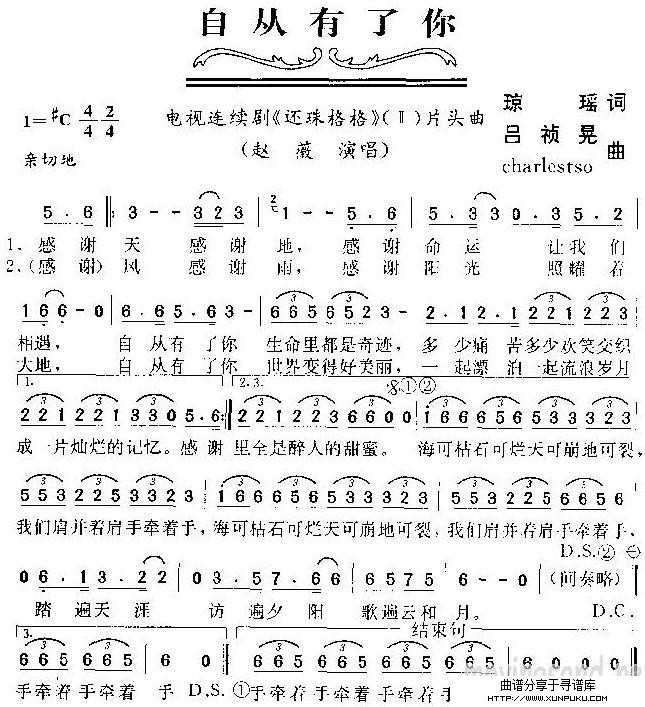 自从有了你
1=♯C 4/4 2/4
电视连续剧《还珠格格》(Ⅱ)片头曲
琼 瑶 词
吕祯晃
charlestso 曲
亲切地
(赵 薇 演唱)
5 . 6 ‖: 3 - - 3 2 3 | 1 - - 5 . 6 | 5 . 3 3 0 3 . 5 2 |
1. 感 谢 天 感 谢 地, 感 谢 命 运 让 我 们
2.(感 谢) 风 感 谢 雨, 感 谢 阳 光 照 耀 着
1 6 6 - 0 | 6 . 6 5 . 6 3 | 6 6 5 6 5 2 3 - | 2 . 1 2 . 1 2 2 1 2 2 3 |
相遇, 自 从 有 了 你 生命里都是奇迹, 多 少痛 苦多少欢笑交织
大地, 自 从 有 了 你 世界变得好美丽, 一 起漂 泊一起流浪岁月
1. 2.3. 𝄋①②
2 2 1 2 2 1 3 3 0 5 . 6 :‖ 2 2 1 2 2 3 6 6 0 0 | 1 6 6 6 5 6 5 3 5 3 3 2 3 |
成一片灿烂的记忆。感谢 里全是醉人的甜蜜。 海可枯石可烂天可崩地可裂,
5 5 3 2 2 5 3 3 2 3 | 1 6 6 6 5 6 5 3 5 3 3 2 3 | 5 5 3 2 2 5 3 3 2 3 |
我们肩并着肩手牵着手, 海可枯石可烂天可崩地可裂, 我们肩并着肩手牵着手、
D.S.②
0 6 . 1 3 . 2 2 | 0 3 . 5 7 . 6 6 | 6 5 7 5 6 - | 0 - - 0 | (间奏略) |
踏 遍天 涯 访 遍夕 阳 歌遍云和 月。 D.C.
3. 结束句
6 6 5 6 6 5 6 6 5 | 6 0 :‖ 0 6 6 5 6 6 5 6 6 5 | 6 - - 0 ‖
手牵着 手牵着 手牵着 手 D.S.①手牵着 手牵着 手牵着 手
曲谱分享于寻谱库
HTTP://WWW.XUNPUKU.COM